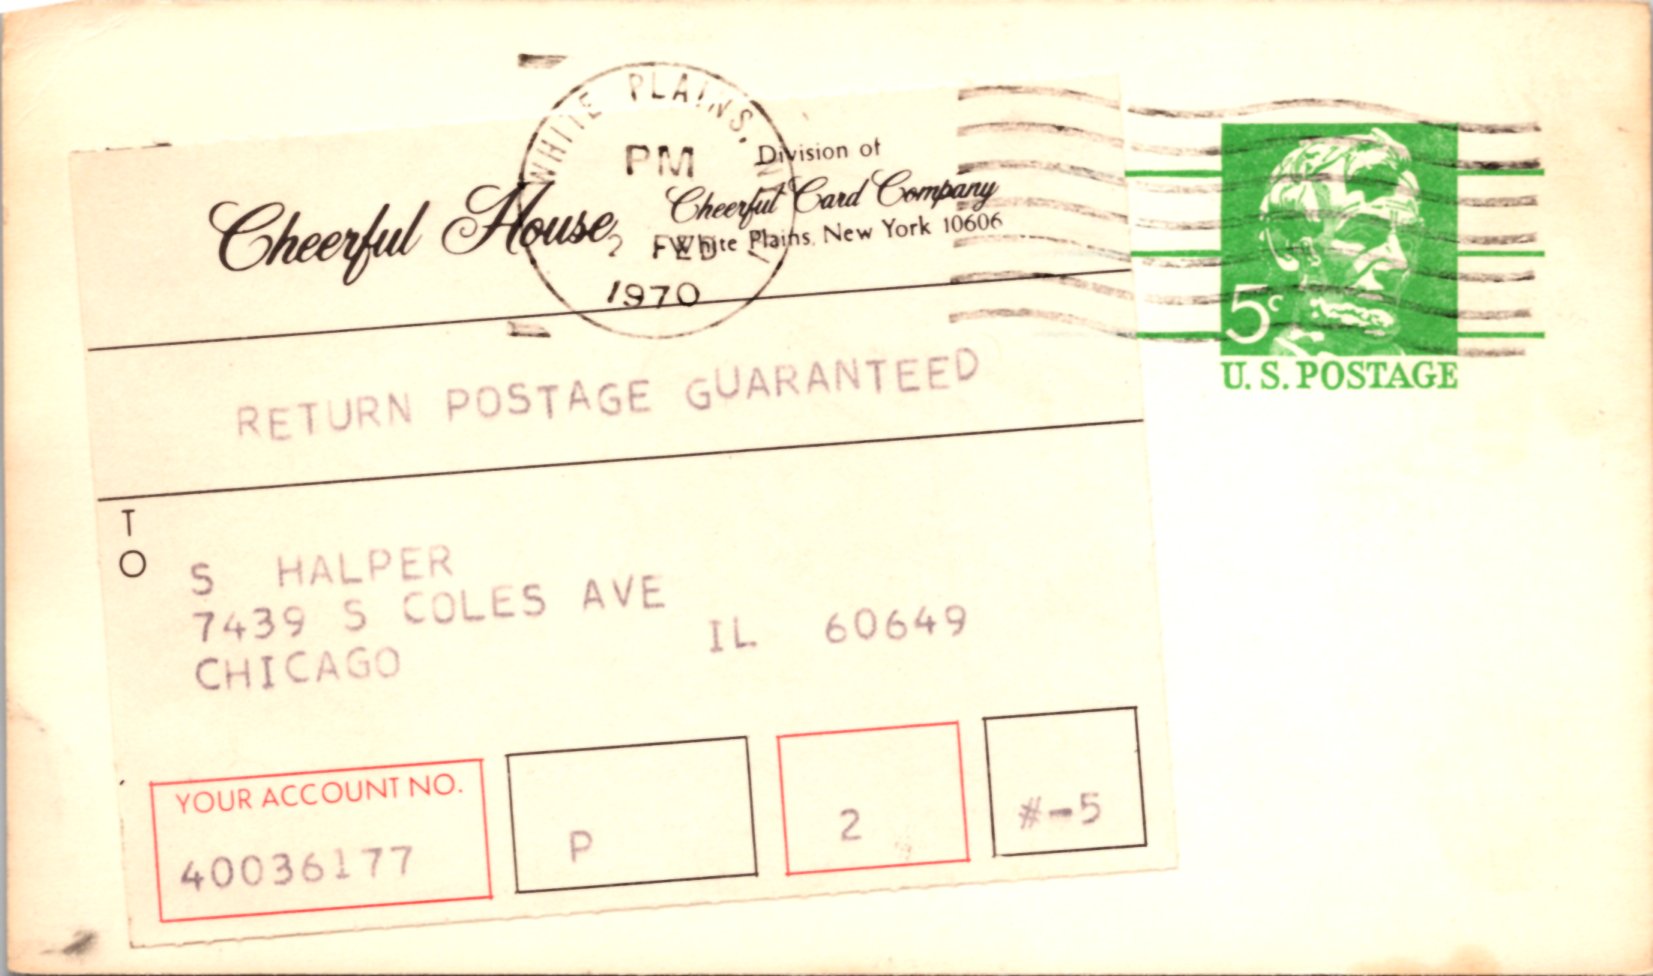 WHITE PLAINS, N
PM
FEB
1970
Cheerful House
Division of
Cheerful Card Company
White Plains, New York 10606
5c
U. S. POSTAGE
RETURN POSTAGE GUARANTEED
TO
S HALPER
7439 S COLES AVE
CHICAGO IL 60649
YOUR ACCOUNT NO.
40036177
P
2
#-5